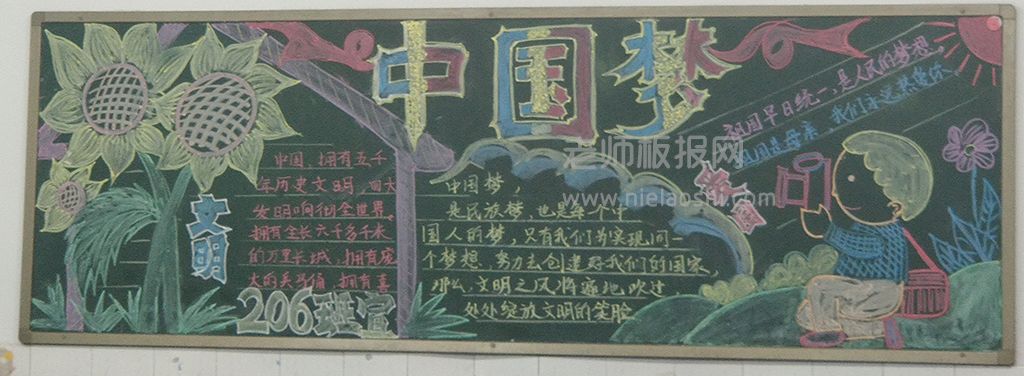 中国梦
祖国早日统一,是人民的梦想,
祖国是母亲,我们永远热爱你
文明
中国,拥有五千
年历史文明,四大
发明响彻全世界。
拥有全长六千多千米
的万里长城,拥有庞
大的
拥有
206班宣
中国梦,
是民族梦,也是每个中
国人的梦,只有我们为实现同一
个梦想,努力去创建好我们的国家,
那么,文明之风将遍地吹过
处处绽放文明的笑脸
老师板报网
www.nielaoshi.com